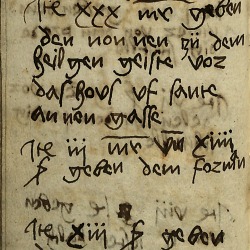 Ite xxx mr geben
den nonnen zu dem
heilgen geiste voz
das hovs vf sante
annen gasse
Ite iii mr viii
geben dem
Ite xiii β geben